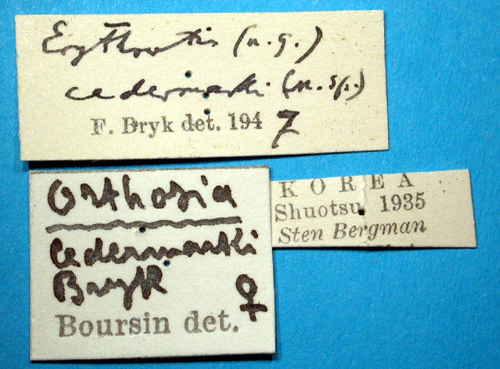 (n. g.)
cedermarki (n. sp.)
F. Bryk det. 1947
Orthosia
cedermarki
Bryk
♀
Boursin det.
KOREA
Shuotsu 1935
Sten Bergman